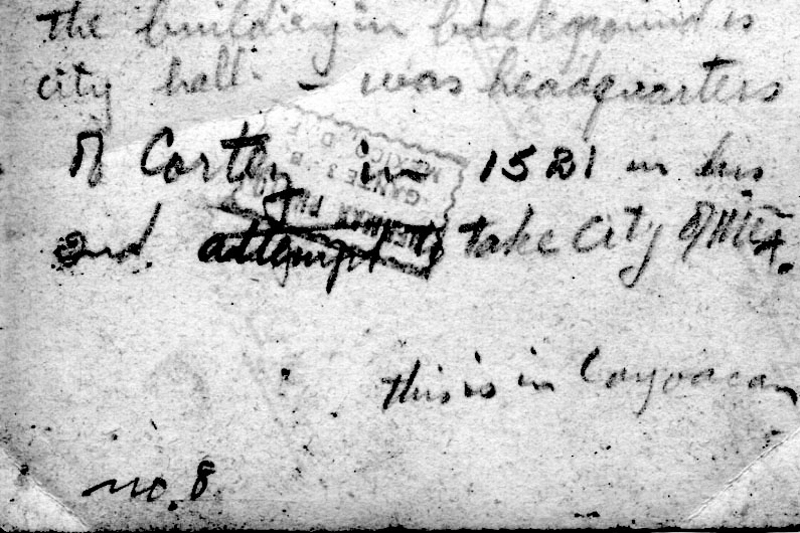 the building in background is
city hall - was headquarters
of Cortez in 1521 in his
2nd. attempt to take City of Mex.
this is in Coyoacan
no. 8